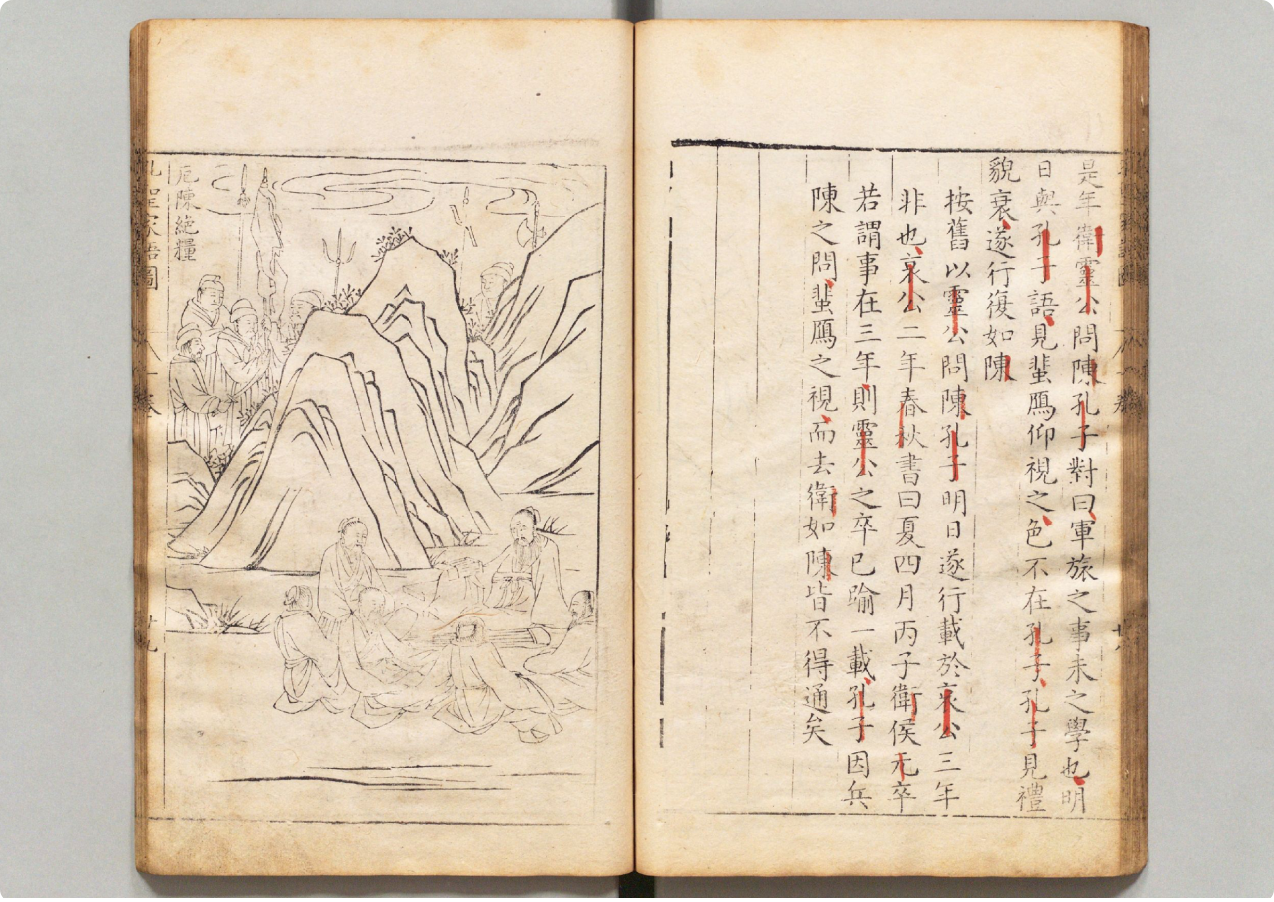 是年衛靈公問陳孔子對曰軍旅之事未之學也明
日與孔子語見蜚鴈仰視之色不在孔子孔子見禮
貌衰遂行復如陳
按舊以靈公問陳孔子明日遂行載於哀公三年
非也哀公二年春秋書曰夏四月丙子衛侯元卒
若謂事在三年則靈公之卒已踰一載孔子因兵
陳之問蜚鴈之視而去衛如陳皆不得通矣
厄陳絕糧
孔聖家語圖